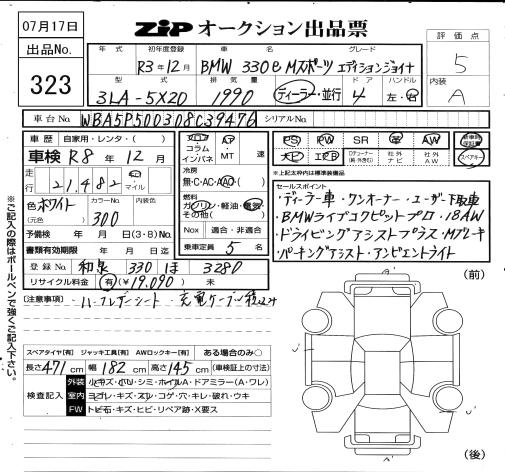 07月17日
ZIP オークション出品票
出品No.
323
評価点
5
内装
A
年式 初年度登録 車名 グレード
R3年12月 BMW 330e Mスポーツ エディションジョイナ
型式 排気量 ドア ハンドル
3LA-5X20 1990 ディーラー・並行 4 左・右
車台No. WBA5P500308C39476 シリアルNo.
車歴 自家用・レンタ・( )
車検 R8年12月
走行 21,482 km マイル
色 ホワイト カラーNo. 内装色
(元色) 300
予備検 年 月 日(3・8)No.
書類有効期限 年 月 日迄
登録No. 和泉 330 ほ 3280
リサイクル料金 有(¥19,090) 未
フロア AT
コラム
インパネ ・MT 速
冷房
無・C・AC・AAC
燃料
ガソリン・軽油・電気
その他( )
Nox 適合・非適合
乗車定員 5 名
PS PW SR 革 AW
ナビ エアB 社外ナビ 社外AW
新車時保証書
スペアキー
※上記太枠内は標準装備品
セールスポイント
・ディーラー車・ワンオーナー・ユーザー下取車
・BMWライブコクピットプロ・18AW
・ドライビングアシストプラス・Mブレーキ
・パーキングアシスト・アンビエントライト
注意事項
※ご記入の際はボールペンで強くご記入下さい。
(前)
(後)
スペアタイヤ[有] ジャッキ工具[有] AWロックキー[有] ある場合のみ○
長さ471cm 幅182cm 高さ145cm (車検証上の寸法)
検査記入
外装 小キズ・小W・シミ・ホイルA・ドアミラー(A・ワレ)
室内 ヨゴレ・キズ・スレ・コゲ・穴・キレ・破れ・ウキ
FW トビ石・キズ・ヒビ・リペア跡・X要ス